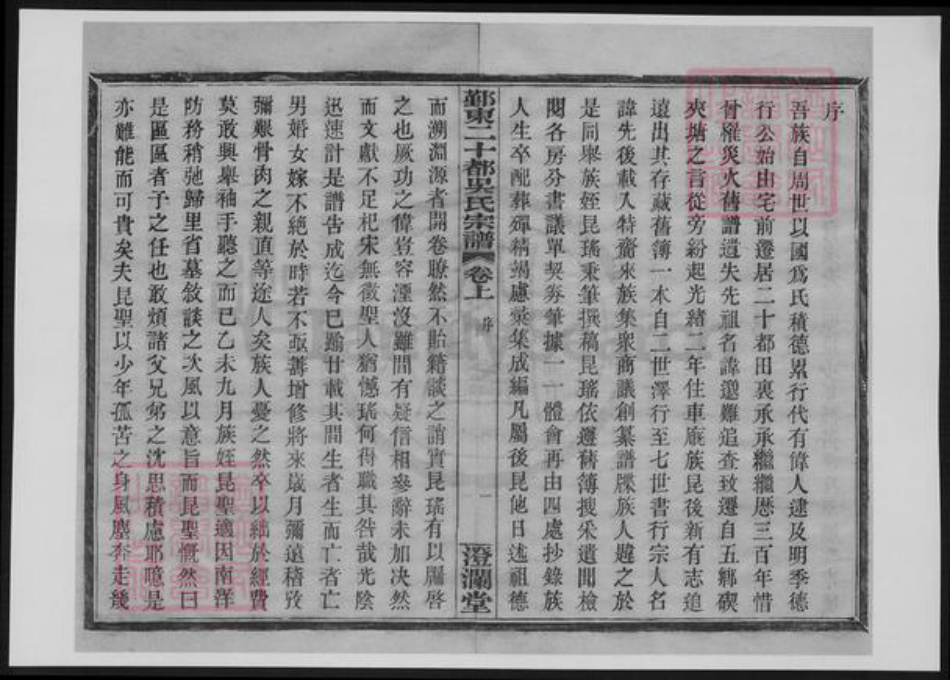 序
吾族自周世以國爲氏積德累行代有偉人逮及明季德
行公始由宅前遷居二十都田裏承承繼繼歷三百年惜
曾罹災火舊譜遺失先祖名諱邈難追查致遷自五鄉碶
夾塘之言從旁紛起光緒二年住車廠族昆後新有志追
遠出其存藏舊簿一本自二世澤行至七世書行宗人名
諱先後載入特齎來族集衆商議創纂譜牒族人韙之於
是同舉族姪昆瑤秉筆撰稿昆瑤依遵舊簿搜采遺聞檢
閱各房分書議單契券筆據一一體會再由四處抄錄族
人生卒配葬殫精竭慮彙集成編凡屬後昆他日述祖德
鄞東二十都吳氏宗譜 卷上 序 一 澄瀾堂
而溯淵源者開卷瞭然不貽籍談之誚實昆瑤有以牖啓
之也厥功之偉豈容湮沒雖間有疑信相參辭未加決然
而文獻不足杞宋無徵聖人猶憾瑤何得職其咎哉光陰
迅速計是譜告成迄今已踰廿載其間生者生而亡者亡
男婚女嫁不絕於時若不亟籌增修將來歲月彌遠稽攷
彌艱骨肉之親直等途人矣族人憂之然卒以絀於經費
莫敢興舉袖手聽之而已乙未九月族姪昆聖適因南洋
防務稍弛歸里省墓敘談之次風以意旨而昆聖慨然曰
是區區者子之任也敢煩諸父兄弟之沈思積慮耶噫是
亦難能而可貴矣夫昆聖以少年孤苦之身風塵奔走幾